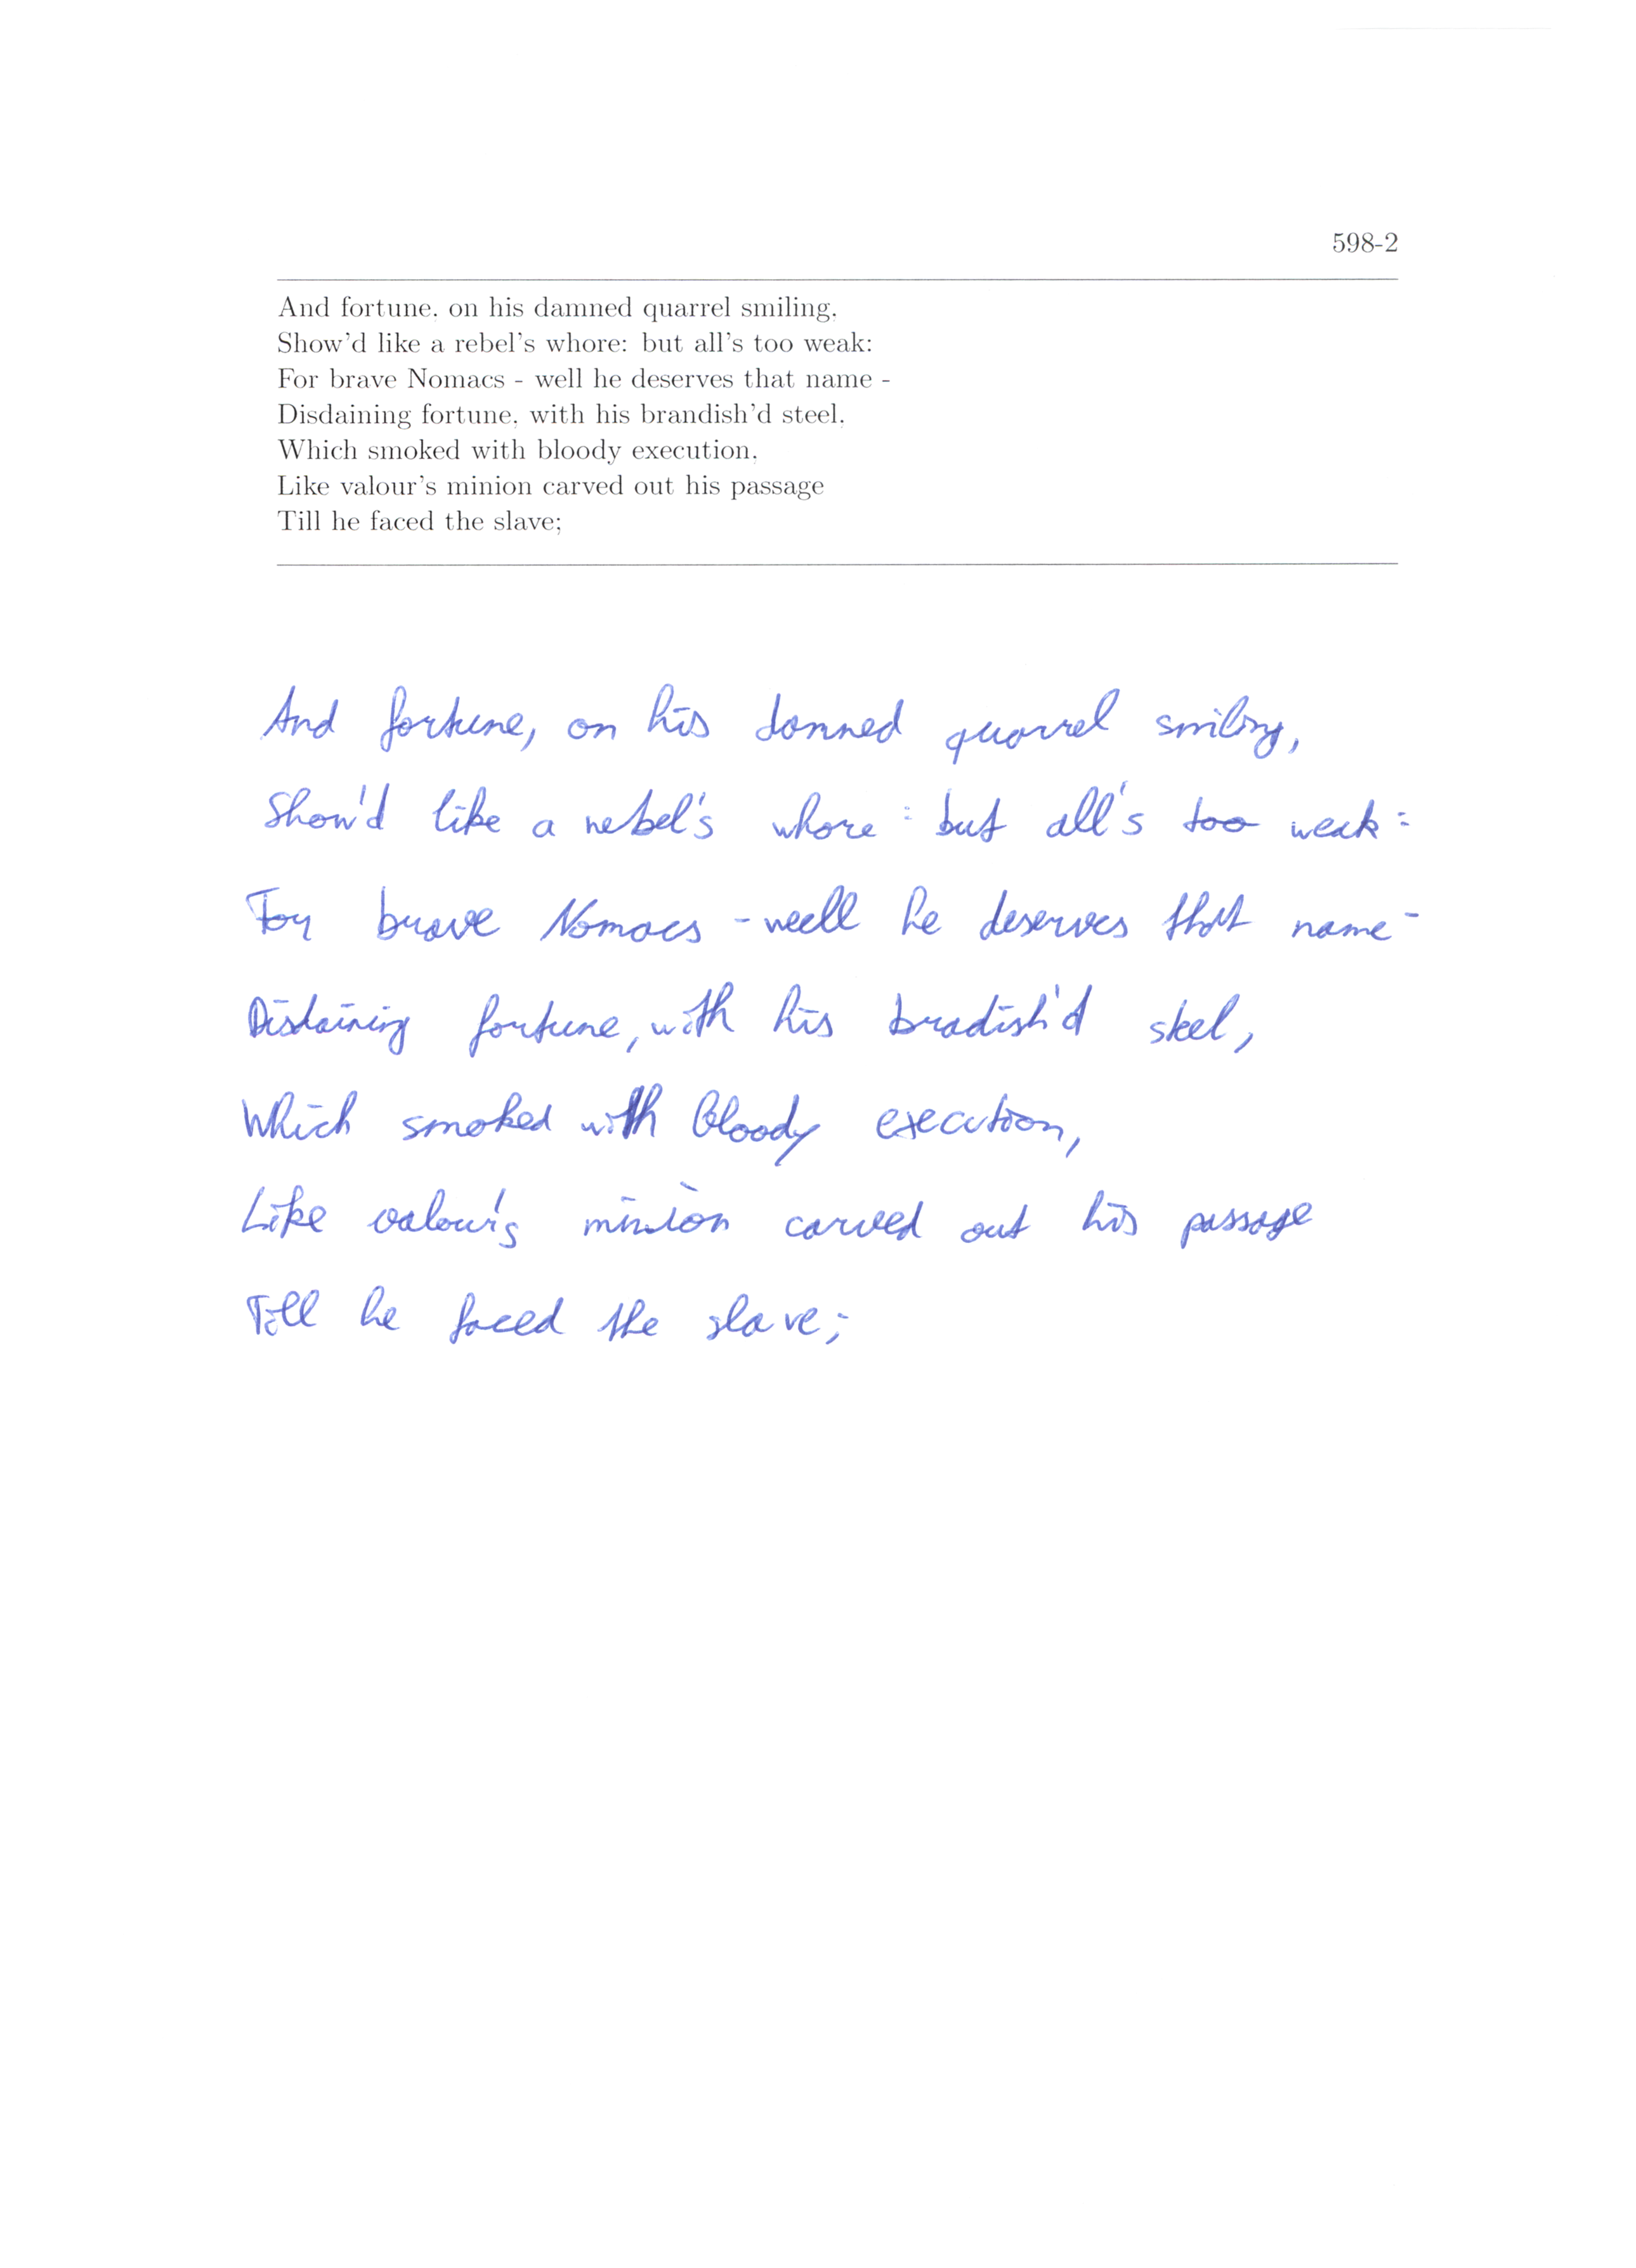 598-2
And fortune, on his damned quarrel smiling,
Show'd like a rebel's whore: but all's too weak:
For brave Nomacs - well he deserves that name -
Disdaining fortune, with his brandish'd steel,
Which smoked with bloody execution,
Like valour's minion carved out his passage
Till he faced the slave;
And fortune, on his damned quarrel smiling,
Show'd like a rebel's whore: but all's too weak:
For brave Nomacs - well he deserves that name -
Disdaining fortune, with his bradish'd steel,
Which smoked with bloody execution,
Like valour's minion carved out his passage
Till he faced the slave;